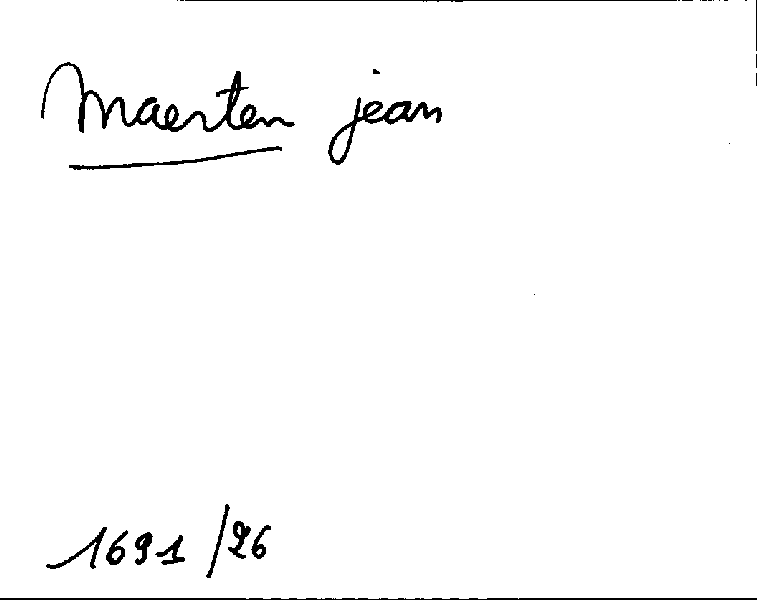 Maerten jean
1691/26